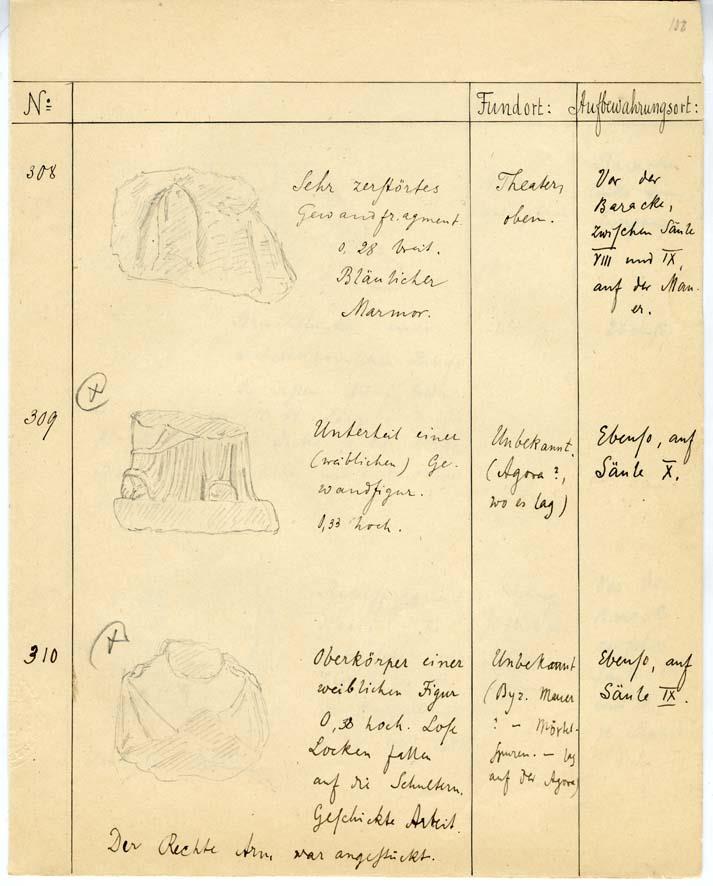 108
No: Fundort: Aufbewahrungsort:
308
Sehr zerstörtes
Gewandfragment
0,28 breit.
Bläulicher
Marmor.
Theater,
oben.
Vor der
Baracke,
zwischen Säule
VIII und IX,
auf der Mau-
er.
309
Unterteil einer
(weiblichen) Ge-
wandfigur.
0,33 hoch.
Unbekannt.
(Agora?,
wo es lag)
Ebenso, auf
Säule X.
310
Oberkörper einer
weiblichen Figur
0,38 hoch. Lose
Locken fallen
auf die Schultern.
Geschickte Arbeit.
Der Rechte Arm war angestückt.
Unbekannt
(Byz. Mauer
? – Mörtel-
spuren. – lag
auf der Agora)
Ebenso, auf
Säule IX.